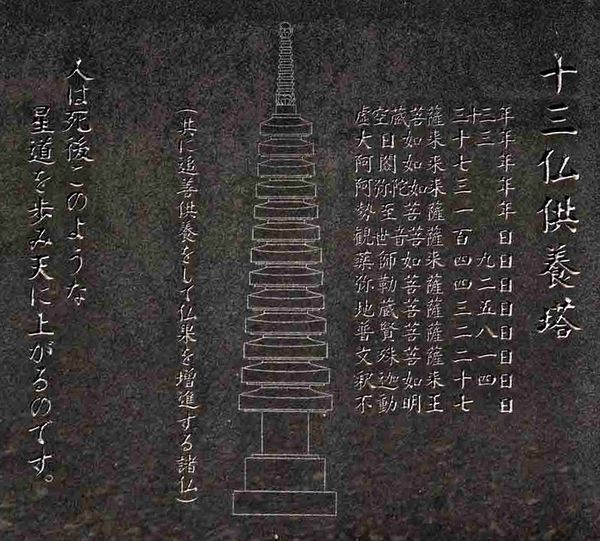 十三仏供養塔
虚空蔵菩薩 三十三年
大日如来 十三年
阿閦如来 七年
阿弥陀如来 三年
勢至菩薩 一年
観世音菩薩 百日
薬師如来 四九日
弥勒菩薩 四二日
地蔵菩薩 三五日
普賢菩薩 二八日
文殊菩薩 二一日
釈迦如来 十四日
不動明王 七日
(共に追善供養をして仏果を増進する諸仏)
人は死後このような
星道を歩み天に上がるのです。